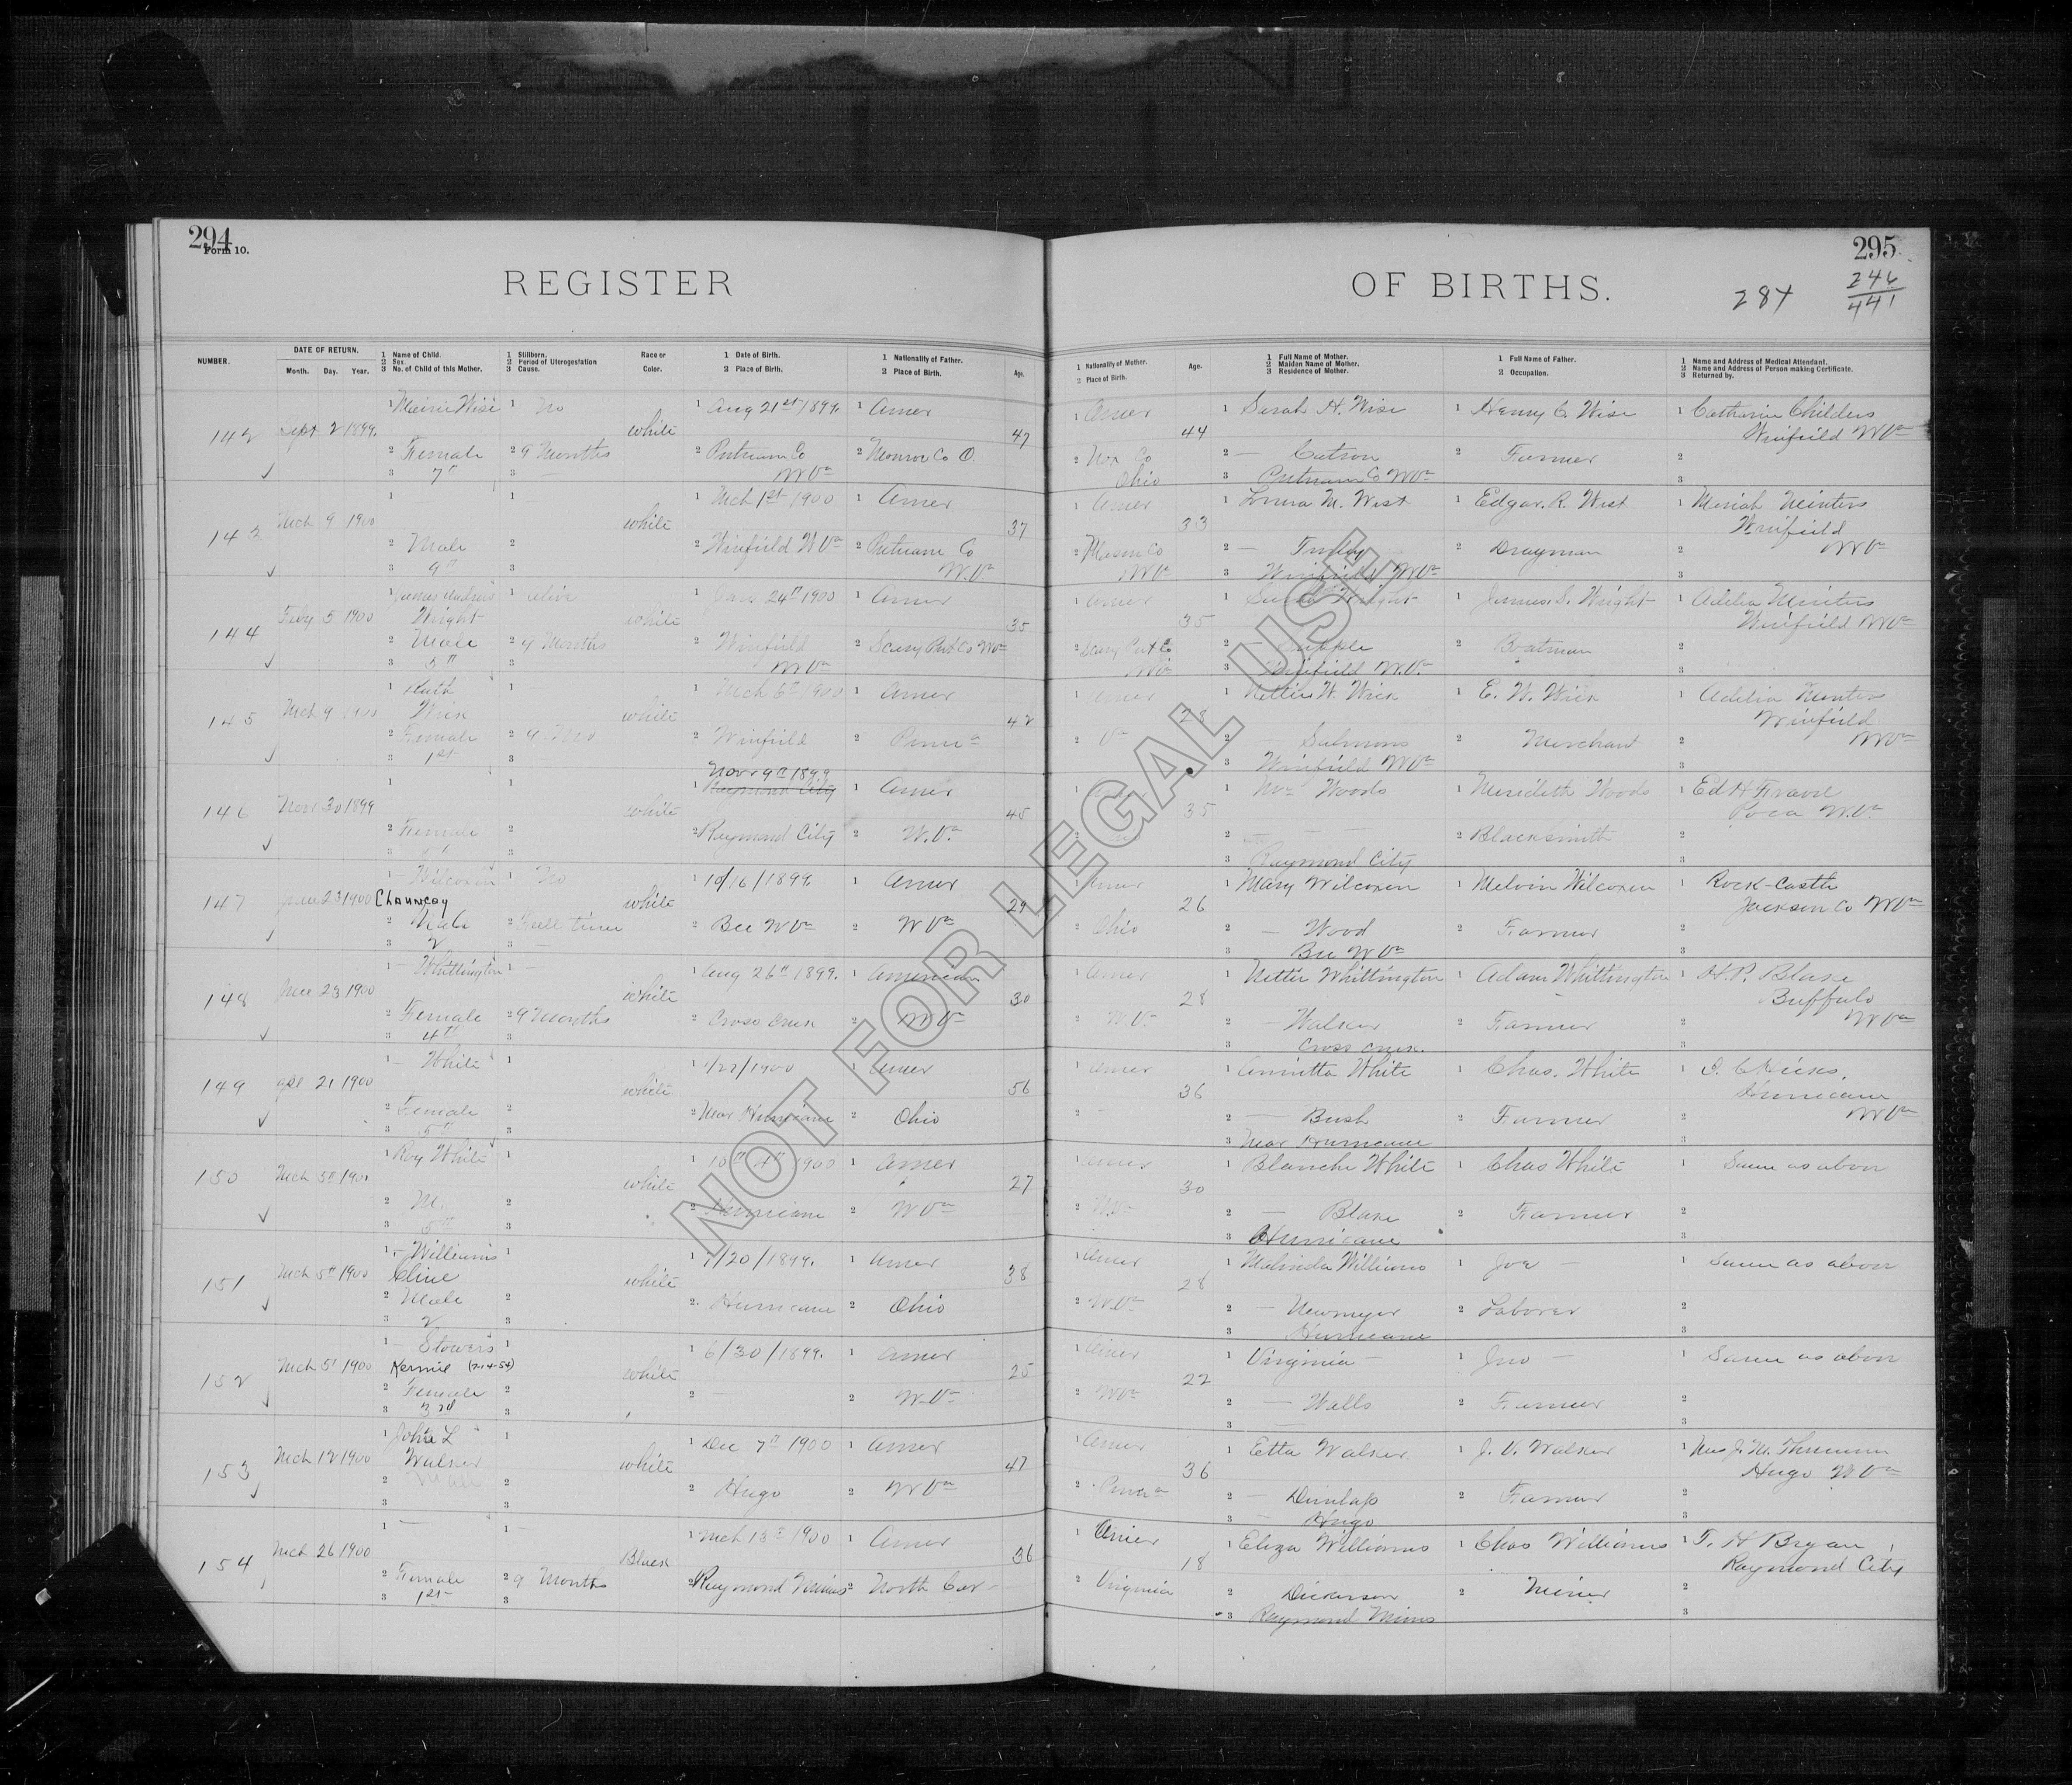 294
Form 10.
REGISTER
OF BIRTHS.
295
287
246
441
NUMBER.
DATE OF RETURN.
Month. Day. Year.
1 Name of Child.
2 Sex.
3 No. of Child of this Mother.
1 Stillborn.
2 Period of Uterogestation
3 Cause.
Race or
Color.
1 Date of Birth.
2 Place of Birth.
1 Nationality of Father.
2 Place of Birth.
Age.
1 Nationality of Mother.
2 Place of Birth.
Age.
1 Full Name of Mother.
2 Maiden Name of Mother.
3 Residence of Mother.
1 Full Name of Father.
2 Occupation.
1 Name and Address of Medical Attendant.
2 Name and Address of Person making Certificate.
3 Returned by.
142 Sept 2 1899. 1 Wise 1 No white 1 Aug 21st 1899. 1 Amer 47 1 Amer 44 1 Sarah H. Wise 1 Henry C Wise 1 Catharine Childers
Winfield WVa
2 Female 2 9 Months 2 Putnam Co 2 Monroe Co O. 2 Nox Co 2 — Catson 2 Farmer 2
3 7" 3 — WVa Ohio 3 Putnam Co WVa 3
143 Mch 9 1900 1 1 white 1 Mch 1st 1900 1 Amer 37 1 Amer 33 1 M. West 1 Edgar. R. West 1 Meriah Minters
Winfield
WVa
2 Male 2 2 Winfield WVa 2 Putnam Co 2 Mason Co 2 — 2 Drayman 2
3 9" 3 W.Va WVa 3 Winfield WVa 3
144 Feby 5 1900 1 James Andrew 1 Alive white 1 Jan 24" 1900 1 Amer 35 1 Amer 35 1 Wright 1 James. S. Wright 1 Adelia Minters
Wright Winfield WVa
2 Male 2 9 Months 2 Winfield 2 Scary Put Co WVa 2 Scary Put Co 2 — 2 Boatman 2
3 5" 3 WVa WVa 3 Winfield W.V. 3
145 Mch 9 1900 1 Ruth 1 — white 1 Mch 6" 1900 1 Amer 42 1 Amer 28 1 Nettie W. Wick 1 E. W. Wick 1 Adelia Minters
Wick Winfield
WVa
2 Female 2 9 Mos 2 Winfield 2 Penna 2 Va 2 — Salmons 2 Merchant 2
3 1st 3 3 Winfield WVa 3
146 Nov 30 1899 1 1 white Nov 9" 1899
1 Raymond City 1 Amer 45 1 Amer 35 1 Mrs Woods 1 Meredith Woods 1 Ed H
Poca W.Va
2 Female 2 2 Raymond City 2 W.Va 2 2 — 2 Blacksmith 2
3 5" 3 3 Raymond City 3
147 June 23 1900 1 — Wilcoxen 1 No white 1 10/16/1899. 1 Amer 29 1 Amer 26 1 Mary Wilcoxen 1 Melvin Wilcoxen 1 Rock-Castle
Chauncey Jackson Co WVa
2 Male 2 Full time 2 Bee WVa 2 WVa 2 Ohio 2 — Wood 2 Farmer 2
3 2 3 — 3 Bee WVa 3
148 June 23 1900 1 — Whittington 1 — white 1 Aug 26" 1899. 1 American 30 1 Amer 28 1 Nettie Whittington 1 Adam Whittington 1 H. P. Blake
Buffalo
WVa
2 Female 2 9 Months 2 Cross Creek 2 WVa 2 W.V. 2 — Walker 2 Farmer 2
3 4th 3 3 Cross Creek. 3
149 21 1900 1 — White 1 white 1 1/27/1900 1 Amer 56 1 Amer 36 1 White 1 Chas. White 1
Hurricane
WVa
2 Female 2 2 Near Hurricane 2 Ohio 2 - 2 — Bush 2 Farmer 2
3 5" 3 3 Near Hurricane 3
150 Mch 5" 1900 1 Roy White 1 white 1 4" 1900 1 Amer 27 1 Amer 30 1 Blanche White 1 Chas White 1 Same as above
2 M. 2 2 Hurricane 2 WVa 2 W.Va 2 — Blake 2 Farmer 2
3 5" 3 3 Hurricane 3
151 Mch 5" 1900 1 — Williams 1 white 1 7/20/1899. 1 Amer 38 1 Amer 28 1 Malinda Williams 1 Joe — 1 Same as above
Cline
2 Male 2 2 Hurricane 2 Ohio 2 W.Va 2 — Newmyer 2 Laborer 2
3 2 3 3 Hurricane 3
152 Mch 5" 1900 1 — Stowers 1 white 1 6/30/1899. 1 Amer 25 1 Amer 22 1 Virginia — 1 Jno — 1 Same as above
Kermie (2-14-54)
2 Female 2 2 — 2 W.Va 2 WVa 2 — Walls 2 Farmer 2
3 3rd 3 3 — 3
153 Mch 12 1900 1 John L 1 white 1 Dec 7" 1900 1 Amer 47 1 Amer 36 1 Etta Walker 1 J. V. Walker 1 Mrs J. M.
Walker Hugo WVa
2 Male 2 2 Hugo 2 WVa 2 Penna 2 — Dunlap 2 Farmer 2
3 3 3 — Hugo 3
154 Mch 26 1900 1 — 1 — Black 1 Mch 13" 1900 1 Amer 36 1 Amer 18 1 Eliza Williams 1 Chas Williams 1 T. H Bryan
Raymond City
2 Female 2 9 Months 2 Raymond Mines 2 North Car- 2 Virginia 2 Dickerson 2 Miner 2
3 1st 3 3 Raymond Mines 3
NOT FOR LEGAL USE